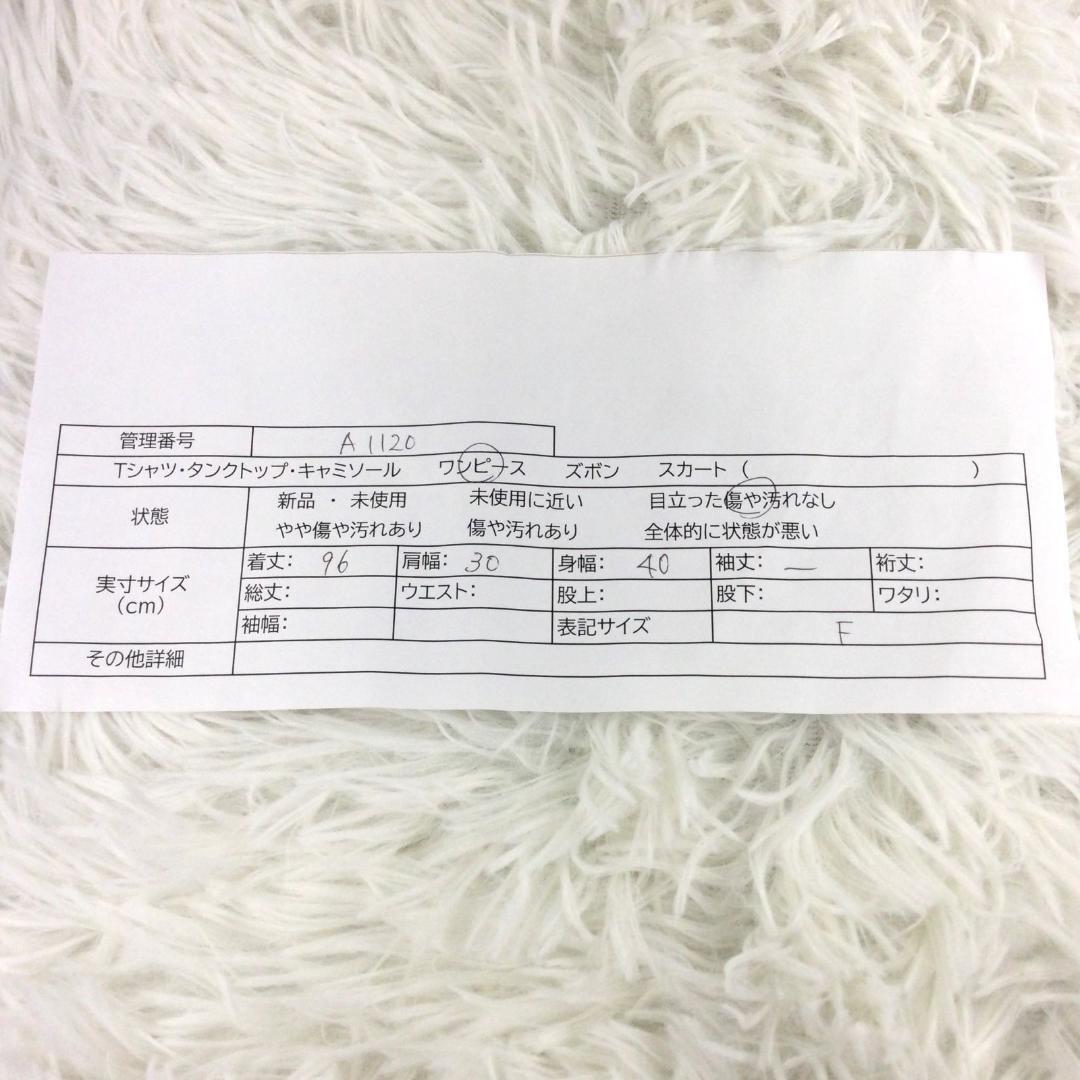 管理番号 A1120
Tシャツ・タンクトップ・キャミソール ワンピース ズボン スカート ( )
状態 新品 ・ 未使用 未使用に近い 目立った傷や汚れなし
やや傷や汚れあり 傷や汚れあり 全体的に状態が悪い
実寸サイズ (cm) 着丈: 96 肩幅: 30 身幅: 40 袖丈: — 裄丈:
総丈: ウエスト: 股上: 股下: ワタリ:
袖幅: 表記サイズ F
その他詳細